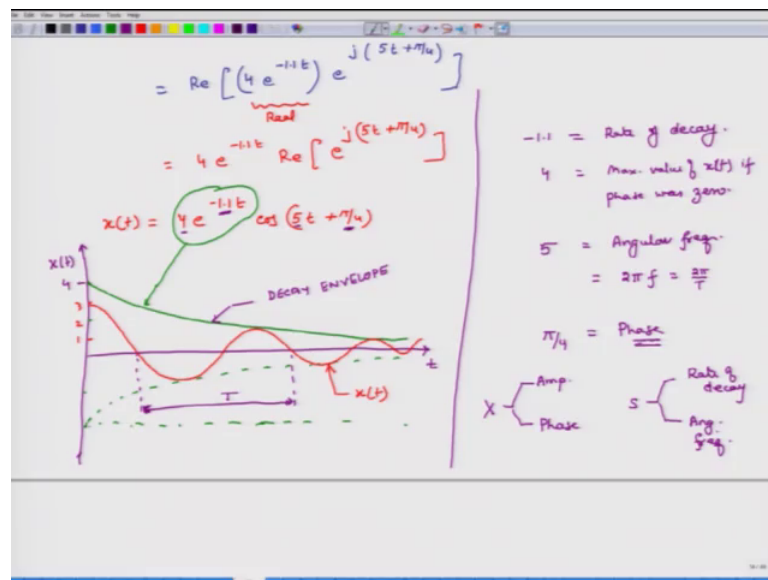 File Edit View Insert Actions Tools Help
= Re [(4 e^{-1.1t}) e^{j(5t+π/4)}]
Real
= 4 e^{-1.1t} Re [e^{j(5t+π/4)}]
x(t) = 4 e^{-1.1t} cos (5t + π/4)
x(t)
4
3
2
1
DECAY ENVELOPE
t
T
x(t)
-1.1 = Rate of decay.
4 = Max. value of x(t) if
phase was zero.
5 = Angular freq.
= 2πf = 2π/T
π/4 = Phase
X
Amp.
Phase
S
Rate of
decay
Ang.
freq.